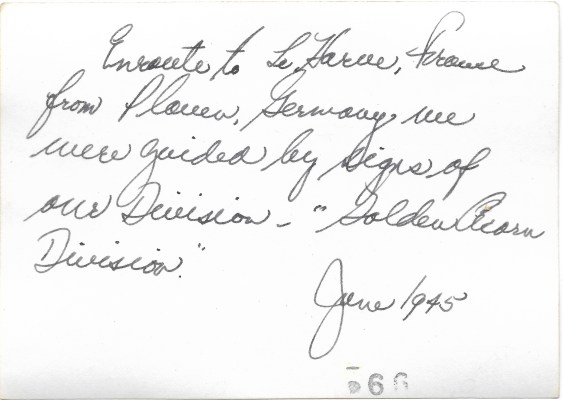 Enroute to Le Harve, France
from Plauen, Germany we
were guided by signs of
our Division - "Golden Acorn
Division."
June 1945